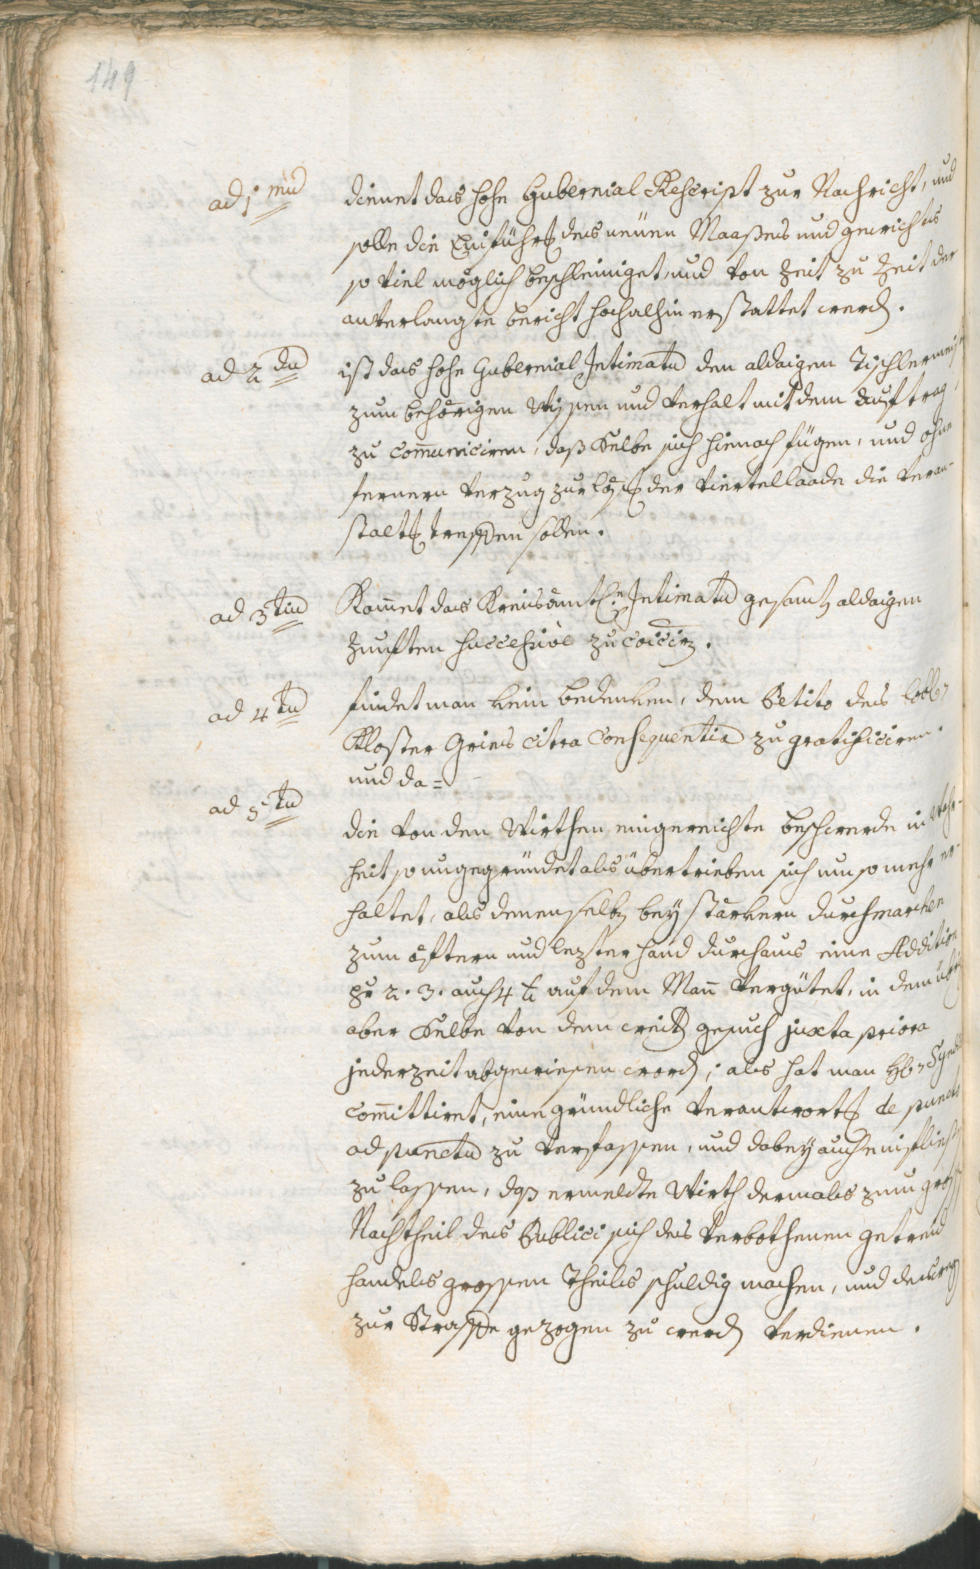 149
ad 1mũ
dienet das hohe Gubernial Rescript zur Nachricht, und
solle die Einführg des neüen Maaßes und gewichts
so viel möglich beschleiniget, und von Zeit zu Zeit der
anverlangte bericht hochalhin erstattet werdn.
ad 2dũ
ist das hohe Gubernial Intimatũ den aldaigen Tischlermeist
zum behörigen Wissen und Verhalt mit dem Auftrag
zu com̃uniciren, daß Selbe sich hienach fügen, und ohne
fernern Verzug zur der Viertellaade die Veran-
staltg treffen sollen.
ad 3tiũ
Kom̃et das Kreisämtle Intimatũ gesamtn aldaigen
Zunften successive zu coicirn.
ad 4tũ
findet man kein bedenken, dem Petito des löbl.
Kloster Gries citra consequentiã zu gratificiren.
und da=
ad 5tũ
die von den Wirthen eingereichte beschwerde in Wahr-
heit so ungegründet als übertrieben sich um so mehr er-
haltet, als denenselbn bey starkern durchmarchen
zum öftern und lezster hand durchaus eine Addition
pr 2. 3. auch 4 x auf dem Mañ Vergütet, in dem
aber Selbe von dem gesuch juxta priora
jederzeit abgewiesen wordn; als hat man H. Syndic
com̃ittiret, eine gründliche Verantwortg de puncto
ad punctũ zu Verfassen, und dabey auch einfliess
zu lassen, daß ermeldte Wirth dermals zum gross
Nachtheil des Publici sich des Verbothenen getreid
handels grossen Theils schuldig machen, und
zur Straffe gezogen zu werdn Verdienen.